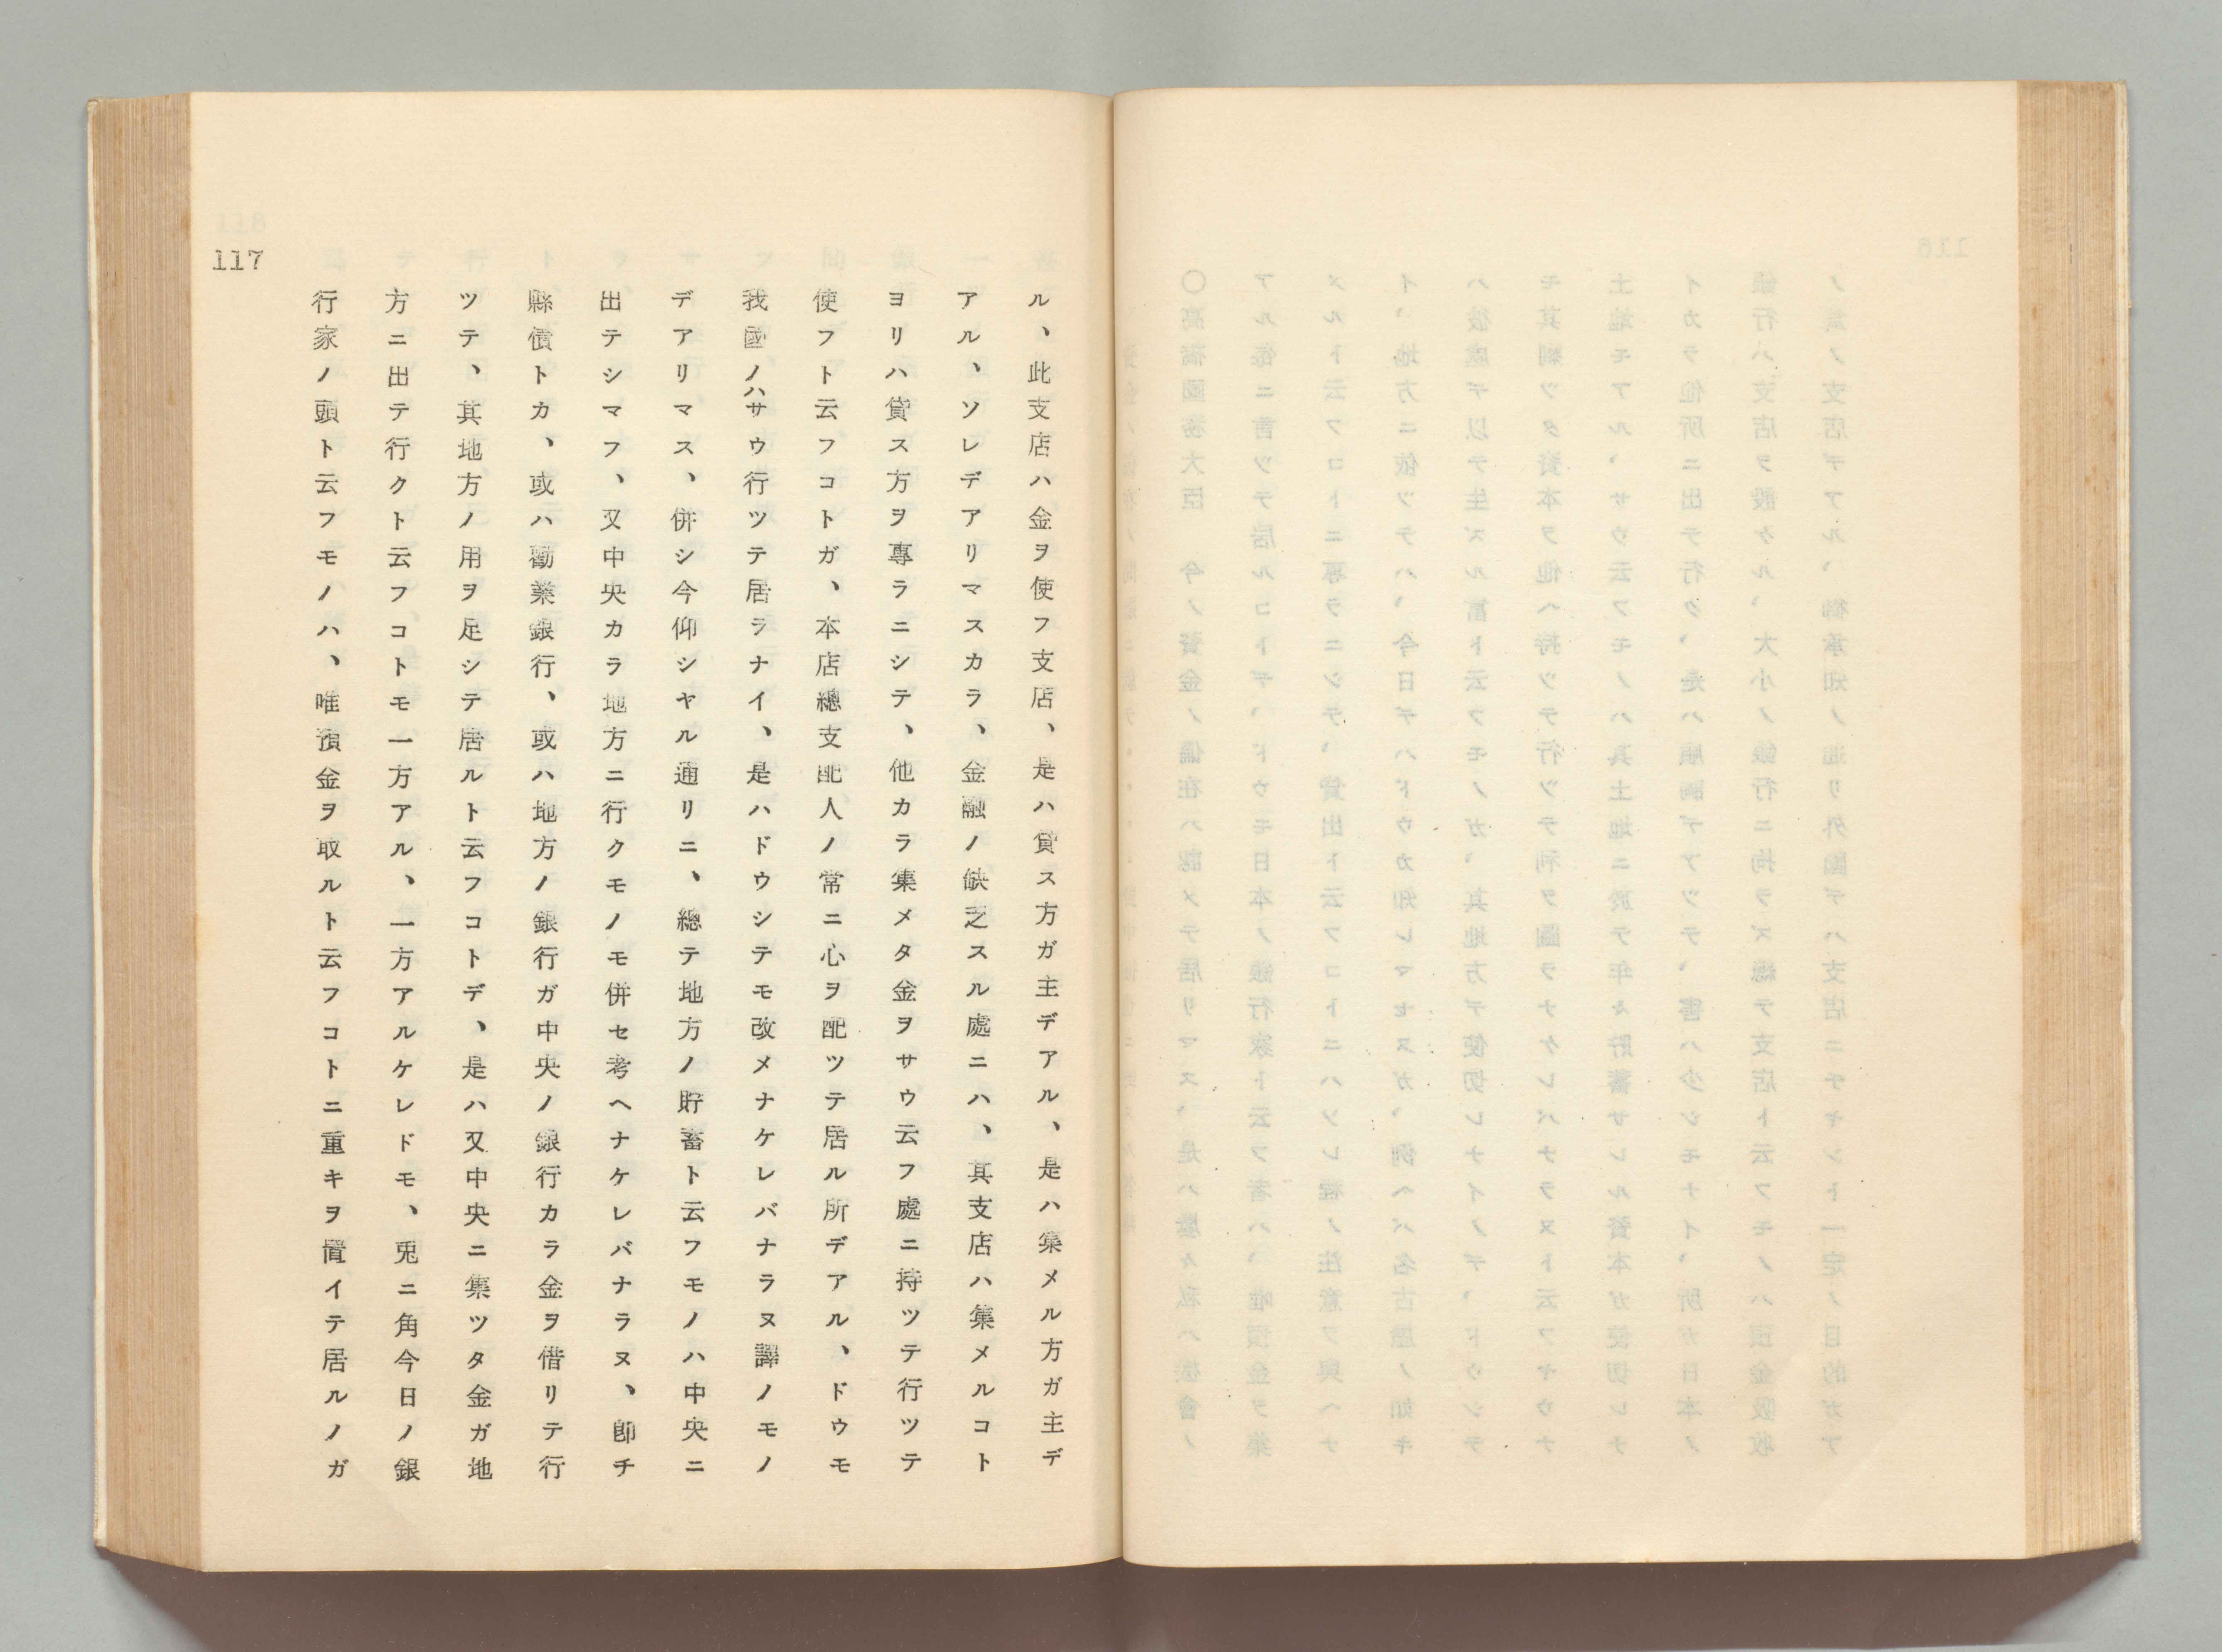 117
ル、此支店ハ金ヲ使フ支店、是ハ貸ス方ガ主デアル、是ハ集メル方ガ主デ
アル、ソレデアリマスカラ、金融ノ缺乏スル處ニハ、其支店ハ集メルコト
ヨリハ貸ス方ヲ專ラニシテ、他カラ集メタ金ヲサウ云フ處ニ持ツテ行ツテ
使フト云フコトガ、本店總支配人ノ常ニ心ヲ配ツテ居ル所デアル、ドウモ
我國ノハサウ行ツテ居ラナイ、是ハドウシテモ改メナケレバナラヌ譯ノモノ
デアリマス、併シ今仰シヤル通リニ、總テ地方ノ貯蓄ト云フモノハ中央ニ
出テシマフ、又中央カラ地方ニ行クモノモ併セ考ヘナケレバナラヌ、卽チ
縣債トカ、或ハ勸業銀行、或ハ地方ノ銀行ガ中央ノ銀行カラ金ヲ借リテ行
ツテ、其地方ノ用ヲ足シテ居ルト云フコトデ、是ハ又中央ニ集ツタ金ガ地
方ニ出テ行クト云フコトモ一方アル、一方アルケレドモ、兎ニ角今日ノ銀
行家ノ頭ト云フモノハ、唯預金ヲ取ルト云フコトニ重キヲ置イテ居ルノガ